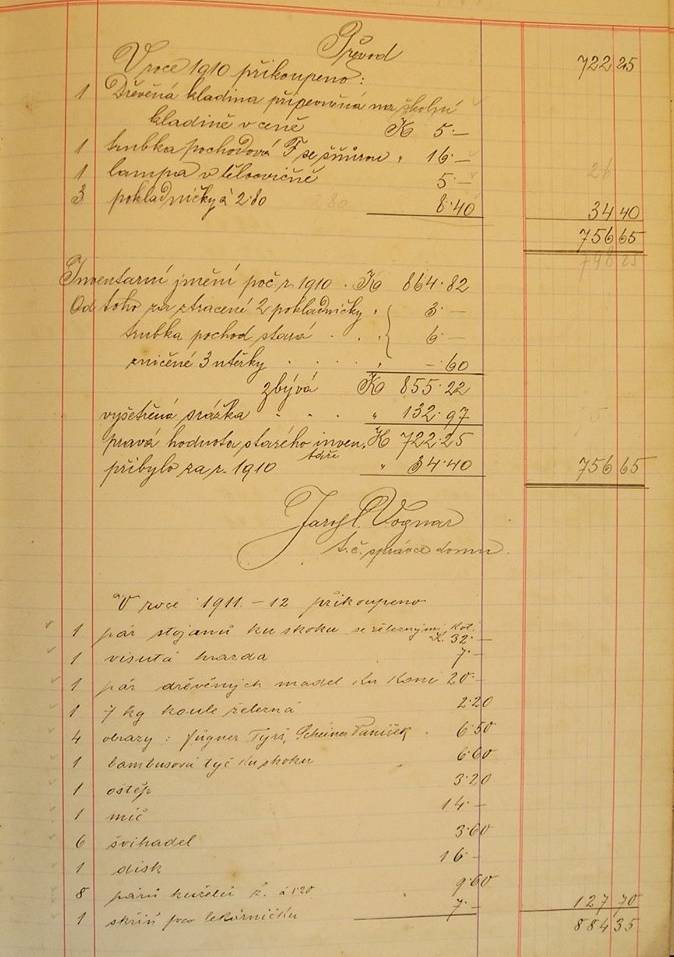 Převod
V roce 1910 přikoupeno: 722 25
1 Dřevěná kladina připevněná na školní
kladině v ceně K 5·—
1 trubka pochodová F se šňůrou „ 16·—
1 lampa v tělocvičně 5·—
3 pokladničky à 2·80 8·40 34 40
756 65
Inventární jmění poč. r. 1910 . K 864·82
Od toho za ztracené 2 pokladničky „ 3·—
trubka pochod stará . . „ 6·—
zničené 3 utěrky . . . . „ —·60
zbývá K 855·22
vyšetřená srážka . . . „ 132·97
pravá hodnota starého inven- K 722·25
táře
přibylo za r. 1910 „ 34·40 756 65
Jarosl. Vognar
t. č. správce domu.
V roce 1911.–12 přikoupeno
1 pár stojanů ku skoku se železnými kol.
K. 32·—
1 visutá hrazda 7·—
1 pár dřevěných madel ku koni 20·—
1 7 kg koule železná 2·20
4 obrazy: Fügner Tyrš, Scheiner Vaníček . 6·50
1 bambusová tyč ku skoku 6·60
1 oštěp 3·20
1 míč 14·—
6 švihadel 3·60
1 disk 16·—
8 párů kuželů ž. à 1·20 9·60
1 skříň pro lekárničku 7·— 127 70
884 35